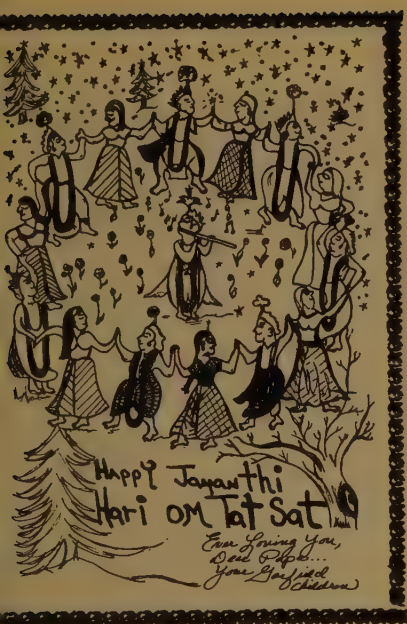 Happy Jayanthi
Hari OM Tat Sat
Ever Loving You,
Dear Papa...
Your Garfield
Children